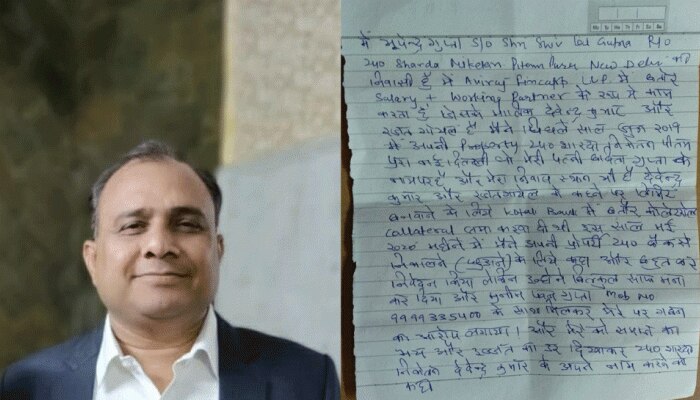 में भूपेन्द्र गुप्ता S/O Shri Shiv Lal Gupta R/O
240 Sharda Niketan Pitam Pura New Delhi का
निवासी हूँ मैं Aniraj Fincapp LLP में बतौर
Salary + Working Partner के रूप में काम
करता हूँ जिसके मालिक देवेन्द्र कुमार और
गोयल हैं मैंने पिछले साल जून 2019
में अपनी Property 240 शारदा निकेतन पीतम
पुरा नई दिल्ली जो मेरी पत्नी कविता गुप्ता के
नाम पर है और मेरा निवास स्थान भी है देवेन्द्र
कुमार और गोयल के कहने पर लिमिट
बनवाने के लिये Kotak Bank में बतौर कोलेटरल
Collateral जमा करवा दी थी इस साल मई
2020 महीने में मैंने अपनी प्रोपर्टी 240 बैंक से
निकालने (छुड़ाने) के लिये कहा और बहुत बार
निवेदन किया लेकिन उन्होंने बिल्कुल साफ मना
कर दिया और मुनीम गुप्ता Mob No
9999335400 के साथ मिलकर मेरे पर गबन
का आरोप लगाया। और मेरे को समाज का
भय और इज्जत का डर दिखाकर 240 शारदा
निकेतन देवेन्द्र कुमार के अपने नाम करने को
कहा